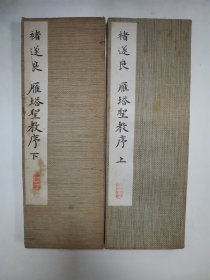 褚遂良 雁塔聖教序 上
褚遂良 雁塔聖教序 下